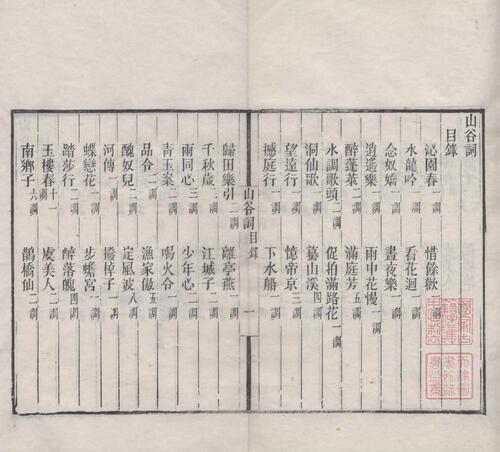 山谷詞
目錄
沁園春一調 惜餘歡一調
水龍吟一調 看花迴一調
念奴嬌一調 晝夜樂一調
逍遙樂一調 雨中花慢一調
醉蓬萊二調 滿庭芳五調
水調歌頭二調 促拍滿路花一調
洞仙歌一調 驀山溪四調
望遠行一調 憶帝京三調
撼庭行一調 下水船一調
山谷詞目錄 一
歸田樂引二調 離亭燕一調
千秋歲二調 江城子二調
兩同心三調 少年心二調
青玉案三調 喝火令一調
品令二調 漁家傲五調
醜奴兒二調 定風波八調
河傳一調 撥棹子一調
蝶戀花一調 步蟾宮一調
踏莎行二調 醉落魄四調
玉樓春十一調 虞美人二調
南鄉子六調 鵲橋仙二調